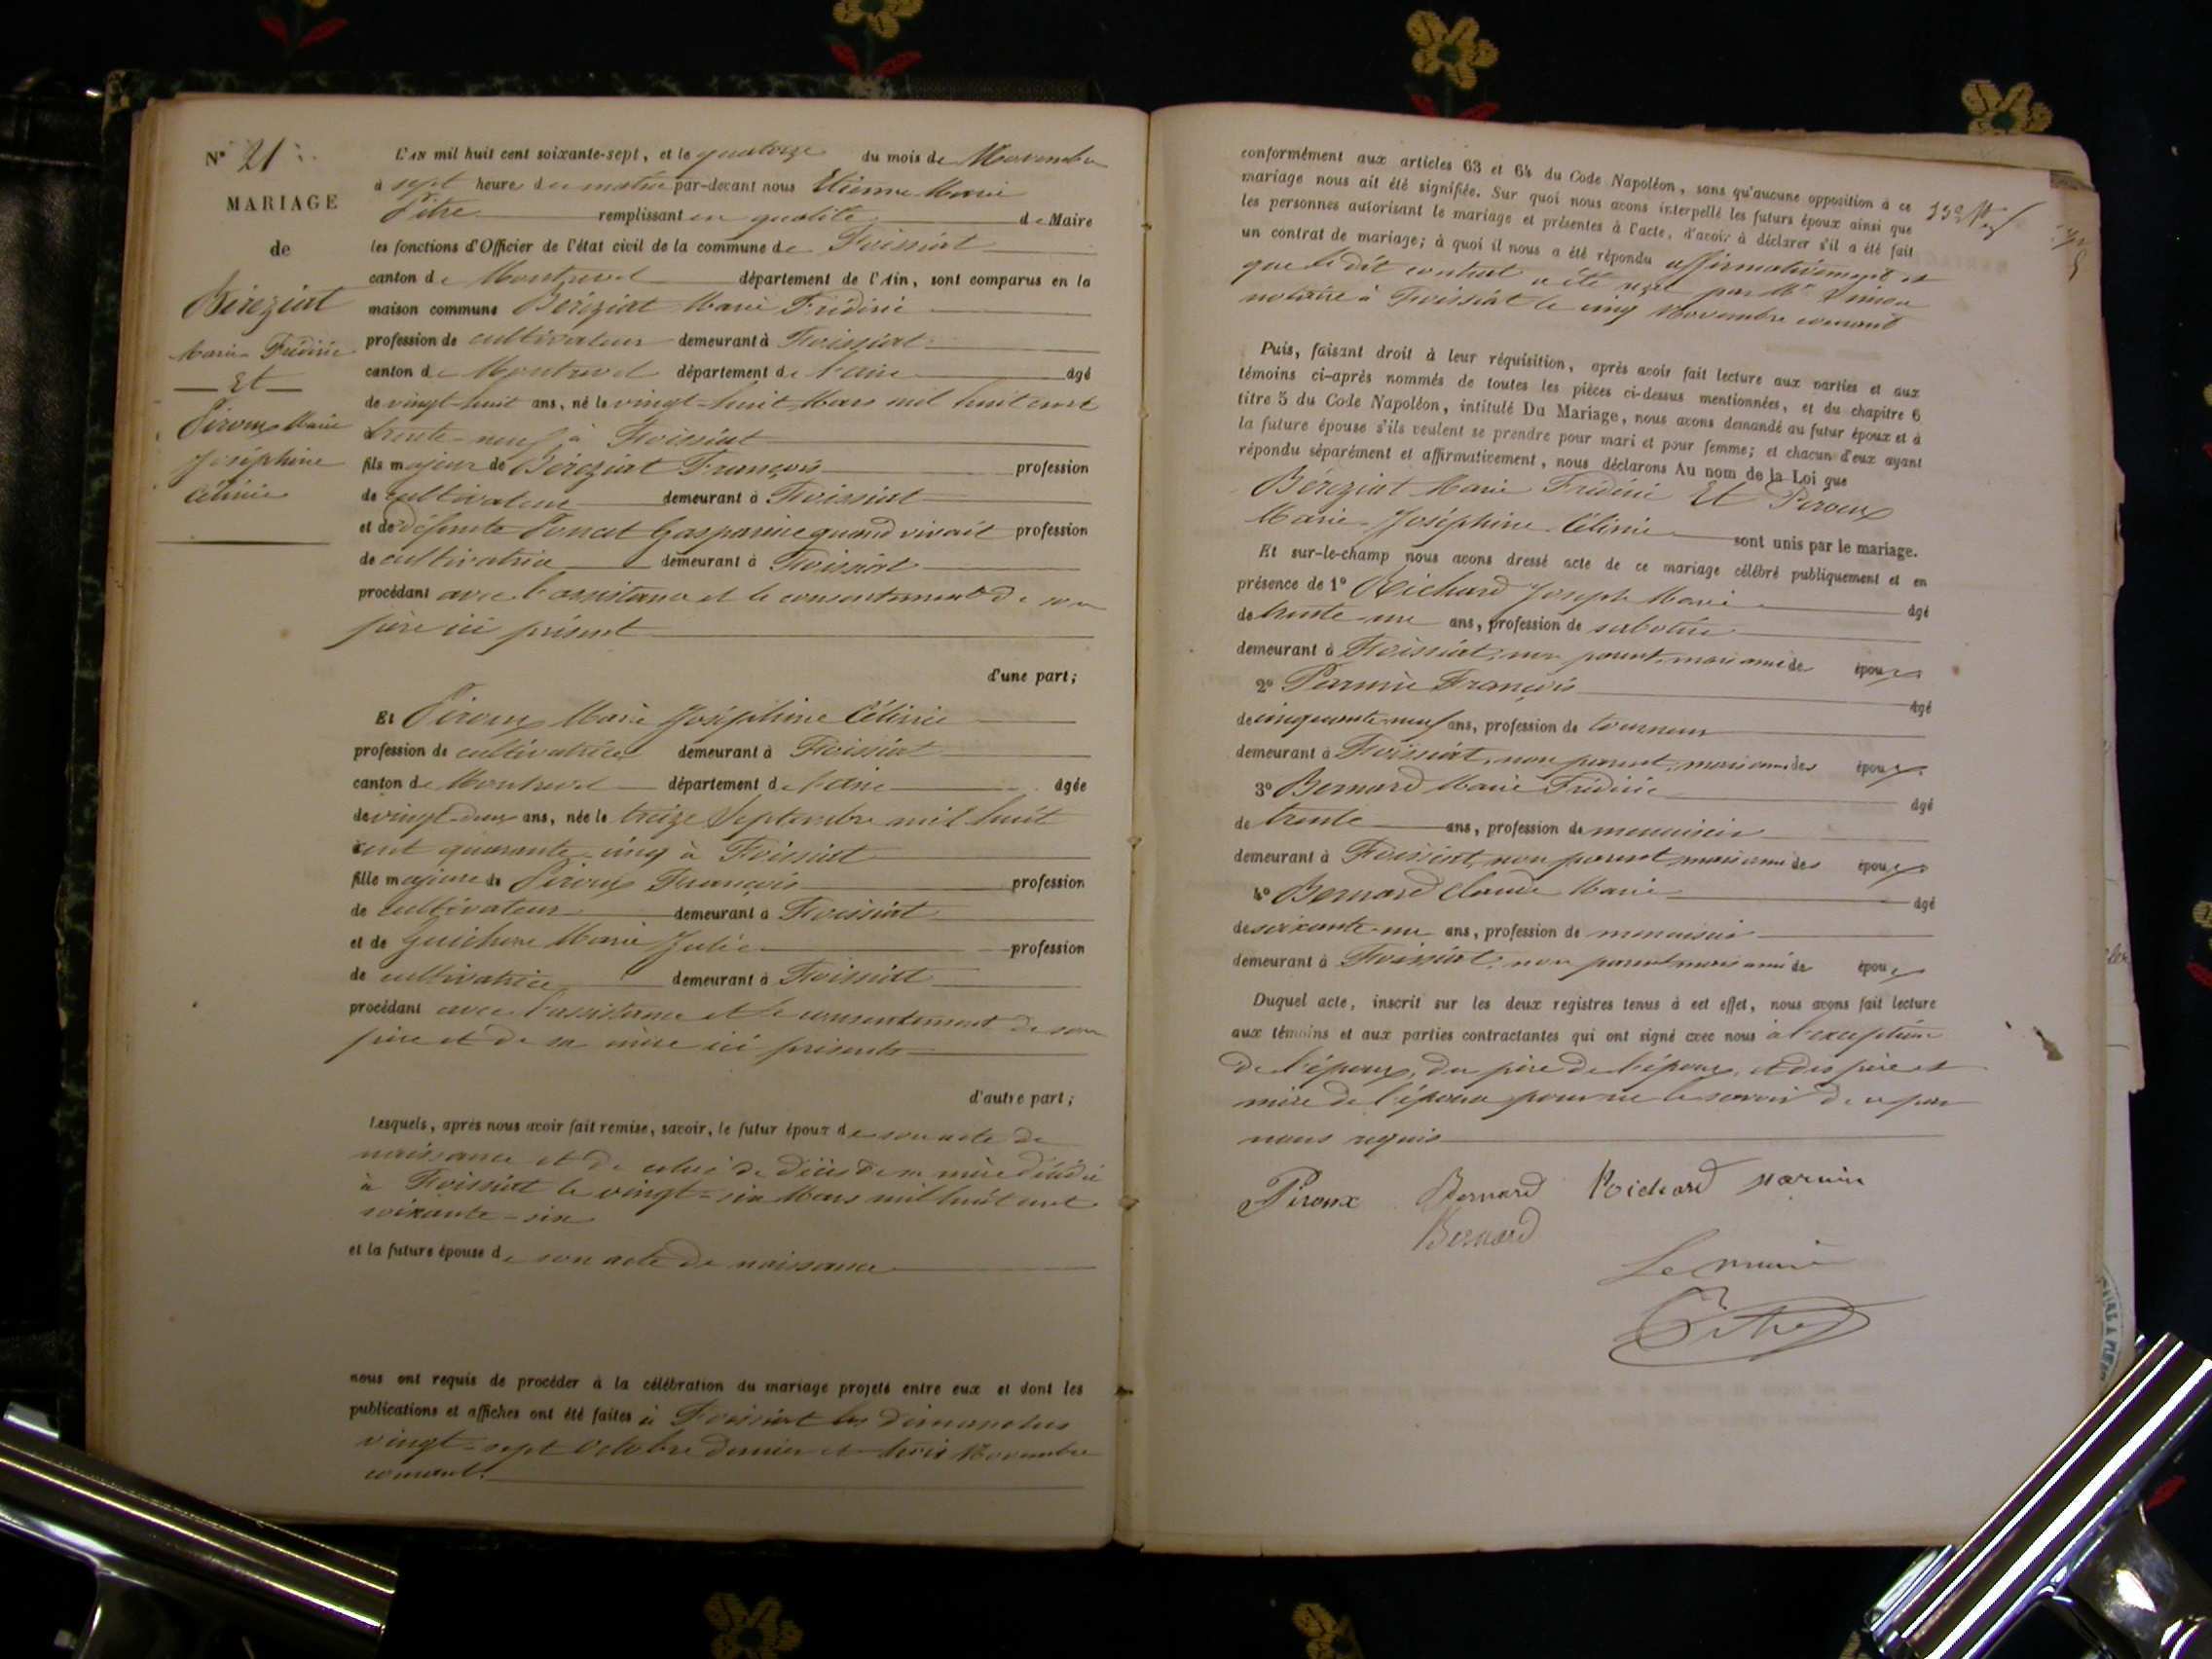 N° 21
MARIAGE
de
Béréziat
Marie Frédéric
Et
Piroux Marie
Joséphine
Célinie
L'AN mil huit cent soixante-sept, et le quatorze du mois de Novembre
à sept heures du matin par-devant nous Etienne Marie
Pitre remplissant en qualité de Maire
les fonctions d'Officier de l'état civil de la commune de Foissiat
canton de Montrevel département de l'Ain, sont comparus en la
maison commune Béréziat Marie Frédéric
profession de cultivateur demeurant à Foissiat
canton de Montrevel département de l'ain âgé
de vingt-huit ans, né le vingt-huit Mars mil huit cent
trente-neuf à Foissiat
fils majeur de Béréziat François profession
de cultivateur demeurant à Foissiat
et de défunte Poncet Gasparine quand vivait profession
de cultivatrice demeurant à Foissiat
procédant avec l'assistance et le consentement de son
père ici présent
d'une part;
Et Piroux Marie Joséphine Célinie
profession de cultivatrice demeurant à Foissiat
canton de Montrevel département de l'ain âgée
de vingt-deux ans, née le treize Septembre mil huit
cent quarante-cinq à Foissiat
fille majeure de Piroux François profession
de cultivateur demeurant à Foissiat
et de Guichon Marie Julie profession
de cultivatrice demeurant à Foissiat
procédant avec l'assistance et le consentement de son
père et de sa mère ici présents
d'autre part;
Lesquels, après nous avoir fait remise, savoir, le futur époux de son acte de
naissance et de celui de décès de sa mère décédée
à Foissiat le vingt-six Mars mil huit cent
soixante-six
et la future épouse de son acte de naissance
nous ont requis de procéder à la célébration du mariage projeté entre eux et dont les
publications et affiches ont été faites à Foissiat les dimanches
vingt-sept Octobre dernier et trois Novembre
courant.
conformément aux articles 63 et 64 du Code Napoléon, sans qu'aucune opposition à ce
mariage nous ait été signifiée. Sur quoi nous avons interpellé les futurs époux ainsi que
les personnes autorisant le mariage et présentes à l'acte, d'avoir à déclarer s'il a été fait
un contrat de mariage; à quoi il nous a été répondu affirmativement et
que le dit contrat a été reçu par Me
notaire à Foissiat le cinq Novembre courant
Puis, faisant droit à leur réquisition, après avoir fait lecture aux parties et aux
témoins ci-après nommés de toutes les pièces ci-dessus mentionnées, et du chapitre 6
titre 5 du Code Napoléon, intitulé Du Mariage, nous avons demandé au futur époux et à
la future épouse s'ils veulent se prendre pour mari et pour femme; et chacun d'eux ayant
répondu séparément et affirmativement, nous déclarons Au nom de la Loi que
Béréziat Marie Frédéric Et Piroux
Marie Joséphine Célinie sont unis par le mariage.
Et sur-le-champ nous avons dressé acte de ce mariage célébré publiquement et en
présence de 1° Richard Joseph Marie âgé
de trente-un ans, profession de sabotier
demeurant à Foissiat, non parent, mais ami des époux
2° Parmin François âgé
de cinquante-neuf ans, profession de tourneur
demeurant à Foissiat, non parent, mais ami des époux
3° Bernard Marie Frédéric âgé
de trente ans, profession de menuisier
demeurant à Foissiat, non parent mais ami des époux
4° Bernard Claude Marie âgé
de soixante-un ans, profession de menuisier
demeurant à Foissiat, non parent mais ami des époux
Duquel acte, inscrit sur les deux registres tenus à cet effet, nous avons fait lecture
aux témoins et aux parties contractantes qui ont signé avec nous à l'exception
de l'époux, du père de l'époux, et des père et
mère de l'épouse pour ne le savoir de ce par
nous requis
Piroux Bernard Richard parmin
Bernard
Le maire
Pitre